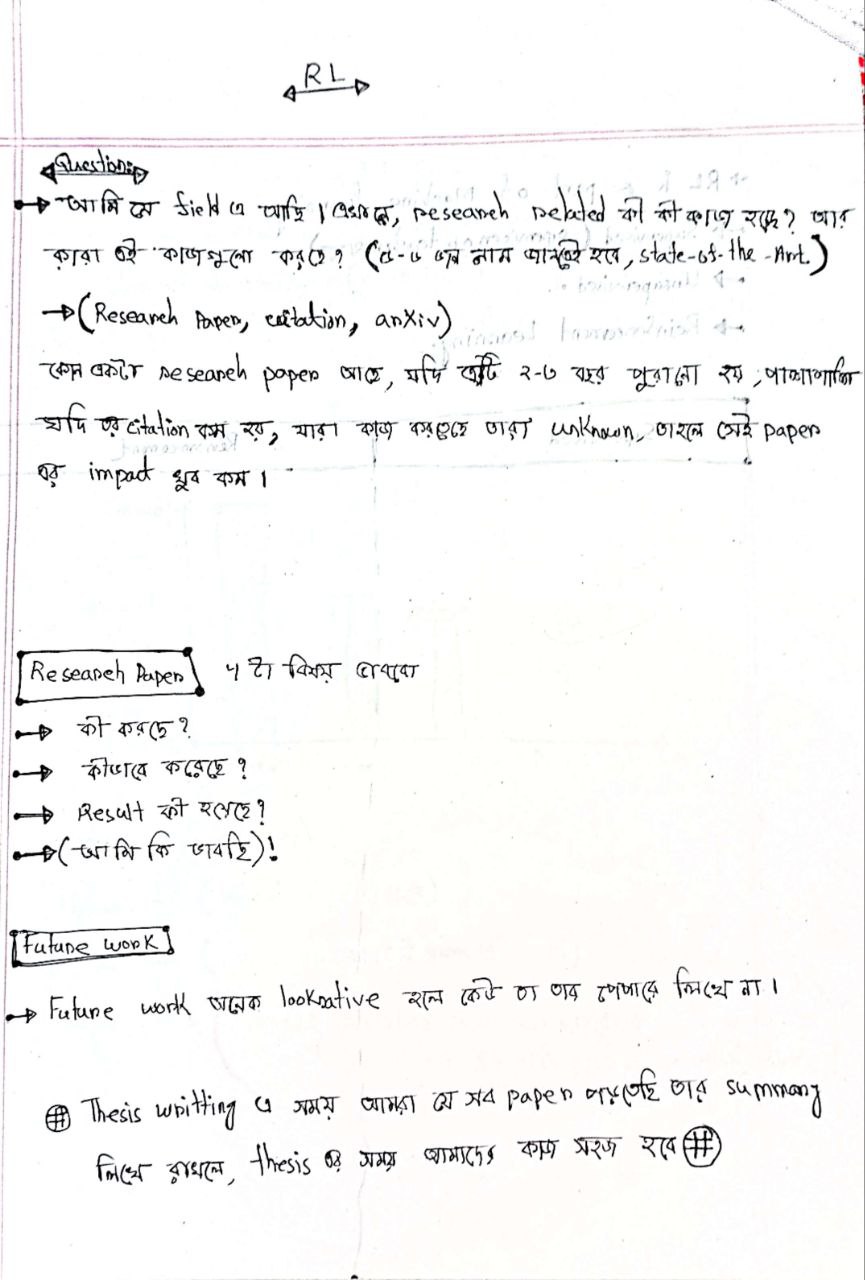 RL
Question:
আমি যে field এ আছি। এখানে, research related কী কী কাজ হচ্ছে? আর
কারা এই কাজগুলো করছে? (৫-৬ জন নাম জানতেই হবে, state-of-the-Art.)
→ (Research Paper, citation, arXiv)
কোন একটা research paper আছে, যদি এটি ২-৩ বছর পুরানো হয়, পাশাপাশি
যদি এর citation কম হয়, যারা কাজ করতেছে তারা unknown, তাহলে সেই paper
এর impact খুব কম।
Research Paper ৪ টা বিষয় ভাববো
→ কী করছে?
→ কীভাবে করেছে?
→ Result কী হয়েছে?
→ (আমি কি ভাবছি)!
Future work
→ Future work অনেক lookrative হলে কেউ তা তার পেপারে লিখে না।
# Thesis writting এ সময় আমরা যে সব paper পড়তেছি তার summary
লিখে রাখলে, thesis এর সময় আমাদের কাজ সহজ হবে #